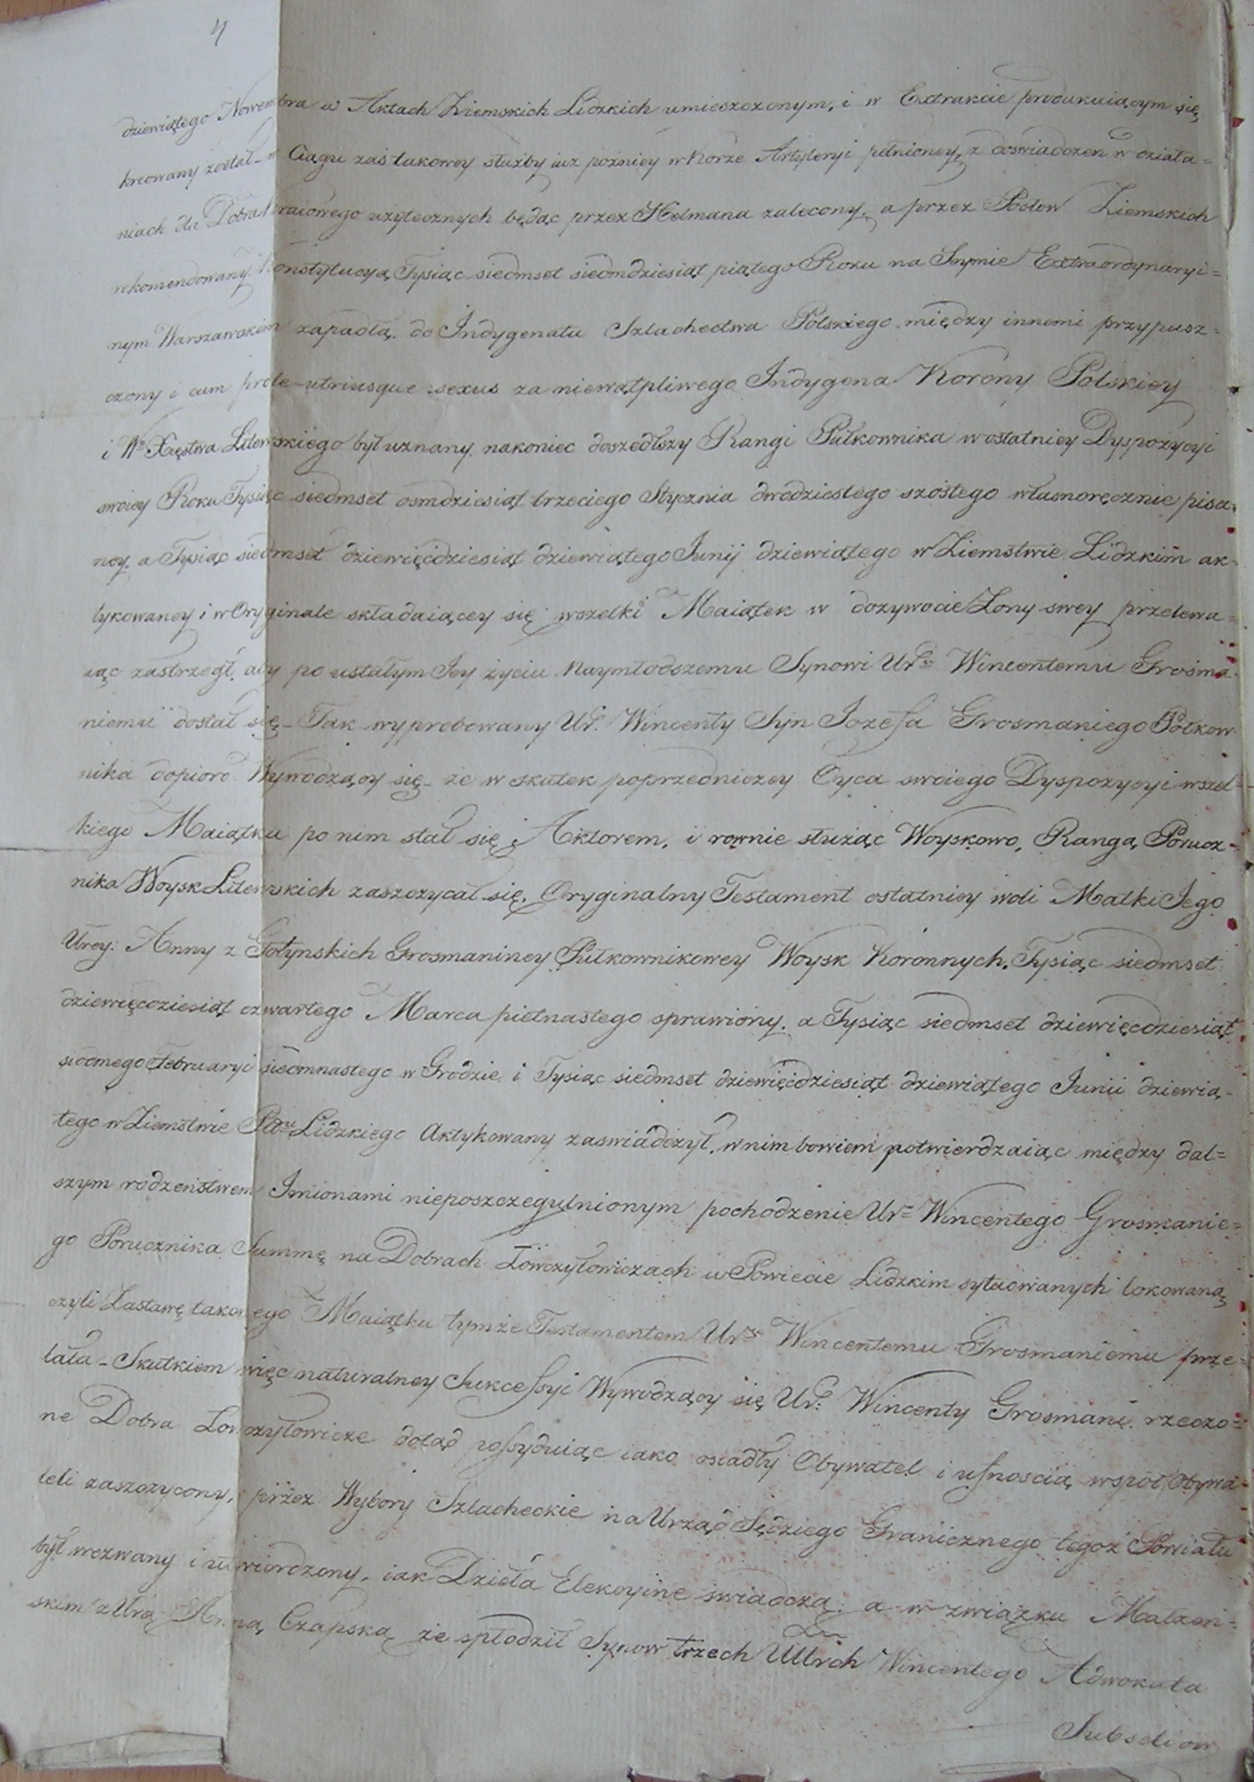 4
dziewiątego Nowembra w Aktach Ziemskich Lidzkich umieszczonym, i w Extrakcie produkuiącym się
kreowany został_ w Ciągu zaś takowey służby iuż pozniey w Korże Artyleryi pełnioney, z doswiadczen w działa=
niach dla Dobra kraiowego użytecznych będąc przez Hetmana zalecony, a przez Posłow Ziemskich
rekomendowany Konstytucyą Tysiąc siedmset siedmdziesiąt piątego Roku na Seymie Extraordynaryi=
nym Warszawskim zapadłą, do Indygenatu Szlachectwa Polskiego między innemi przypusz=
czony i cum prole utriusque sexus za niewątpliwego Indygena Korony Polskiey
i W° Xięstwa Litewskiego był uznany, nakoniec doszedłszy Rangi Pułkownika w ostatniey Dyspozycyi
swoiey Roku Tysiąc siedmset osmdziesiąt trzeciego Stycznia dwodziestego szostego własnoręcznie pisa=
ney, a Tysiąc siedmset dziewięćdziesiąt dziewiątego Junij dziewiątego w Ziemstwie Lidzkim ak=
tykowaney i w Oryginale składaiącey się, wszelki Maiątek w dozywocie Żony swey przelewa=
iąc zastrzegł, aby po ustałym Jey życiu Naymłodszemu Synowi Ur° Wincentemu Grosma=
niemu dostał się_ Tak wyprobowany Ur. Wincenty Syn Jozefa Grosmaniego Półkow
nika dopioro Wywodzący się_ że w skutek poprzedniczey Oyca swoiego Dyspozycyi wszel=
kiego Maiątku po nim stał się Aktorem, i rownie służąc Woyskowo, Rangą Porucz=
nika Woysk Litewskich zaszczycał się, Oryginalny Testament ostatniey woli Matki Jego
Urey: Anny z Gołynskich Grosmaniney Pułkownikowey Woysk Koronnych, Tysiąc siedmset
dziewięćdziesiąt czwartego Marca pietnastego sprawiony, a Tysiąc siedmset dziewięćdziesiąt
siodmego Februaryi siedmnastego w Grodzie i Tysiąc siedmset dziewięćdziesiąt dziewiątego Junii dziewią=
tego w Ziemstwie Pttu Lidzkiego Aktykowany zaswiadczył, w nim bowiem potwierdzaiąc między dal=
szym rodzeństwem Imionami nieposzczegulnionym pochodzenie Ur° Wincentego Grosmanie=
go Porucznika Summę na Dobrach Łowczyłowiczach w Powiecie Lidzkim sytuowanych lokowaną
czyli Zastawę takowego Maiątku tymże Testamentem Ur° Wincentemu Grosmaniemu prze=
lała_ Skutkiem więc naturalney Sukcessyi Wywodzący się Ur. Wincenty Grosmani rzeczo=
ne Dobra Łowczyłowicze dotąd possyduiąc iako osiadły Obywatel i ufnoscią wspoł Obywa=
teli zaszczycony, przez Wybory Szlacheckie na Urząd Sędziego Granicznego tegoż Powiatu
był wezwany i utwierdzony, iak Dzieła Elekcyine swiadczą, a w związku Małzen=
skim z Urą Anną Czapską że spłodził Synow trzech UUrch Wincentego Adwokata
Subseliow